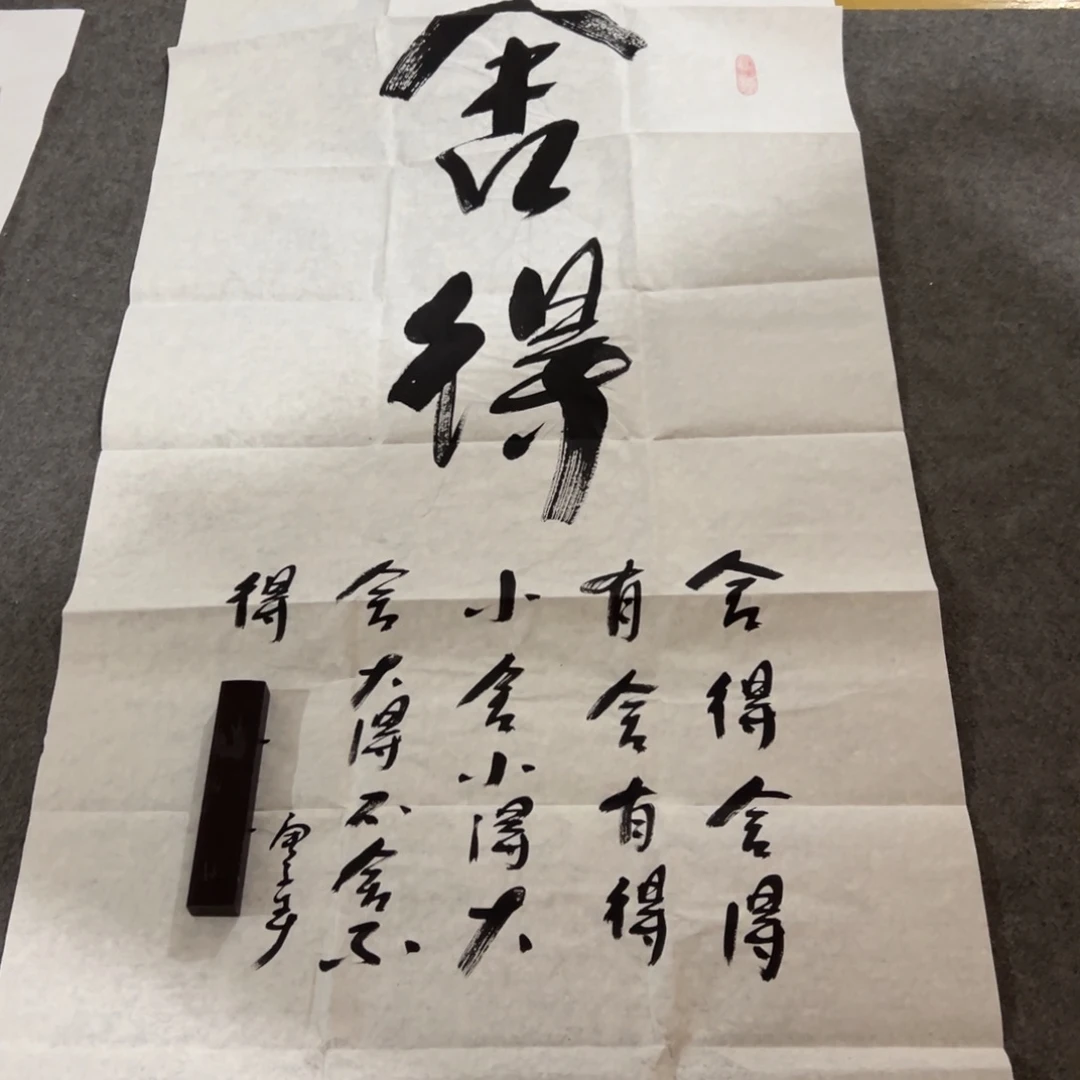 舍得
舍得舍得
有舍有得
小舍小得大
舍大得不舍不
得